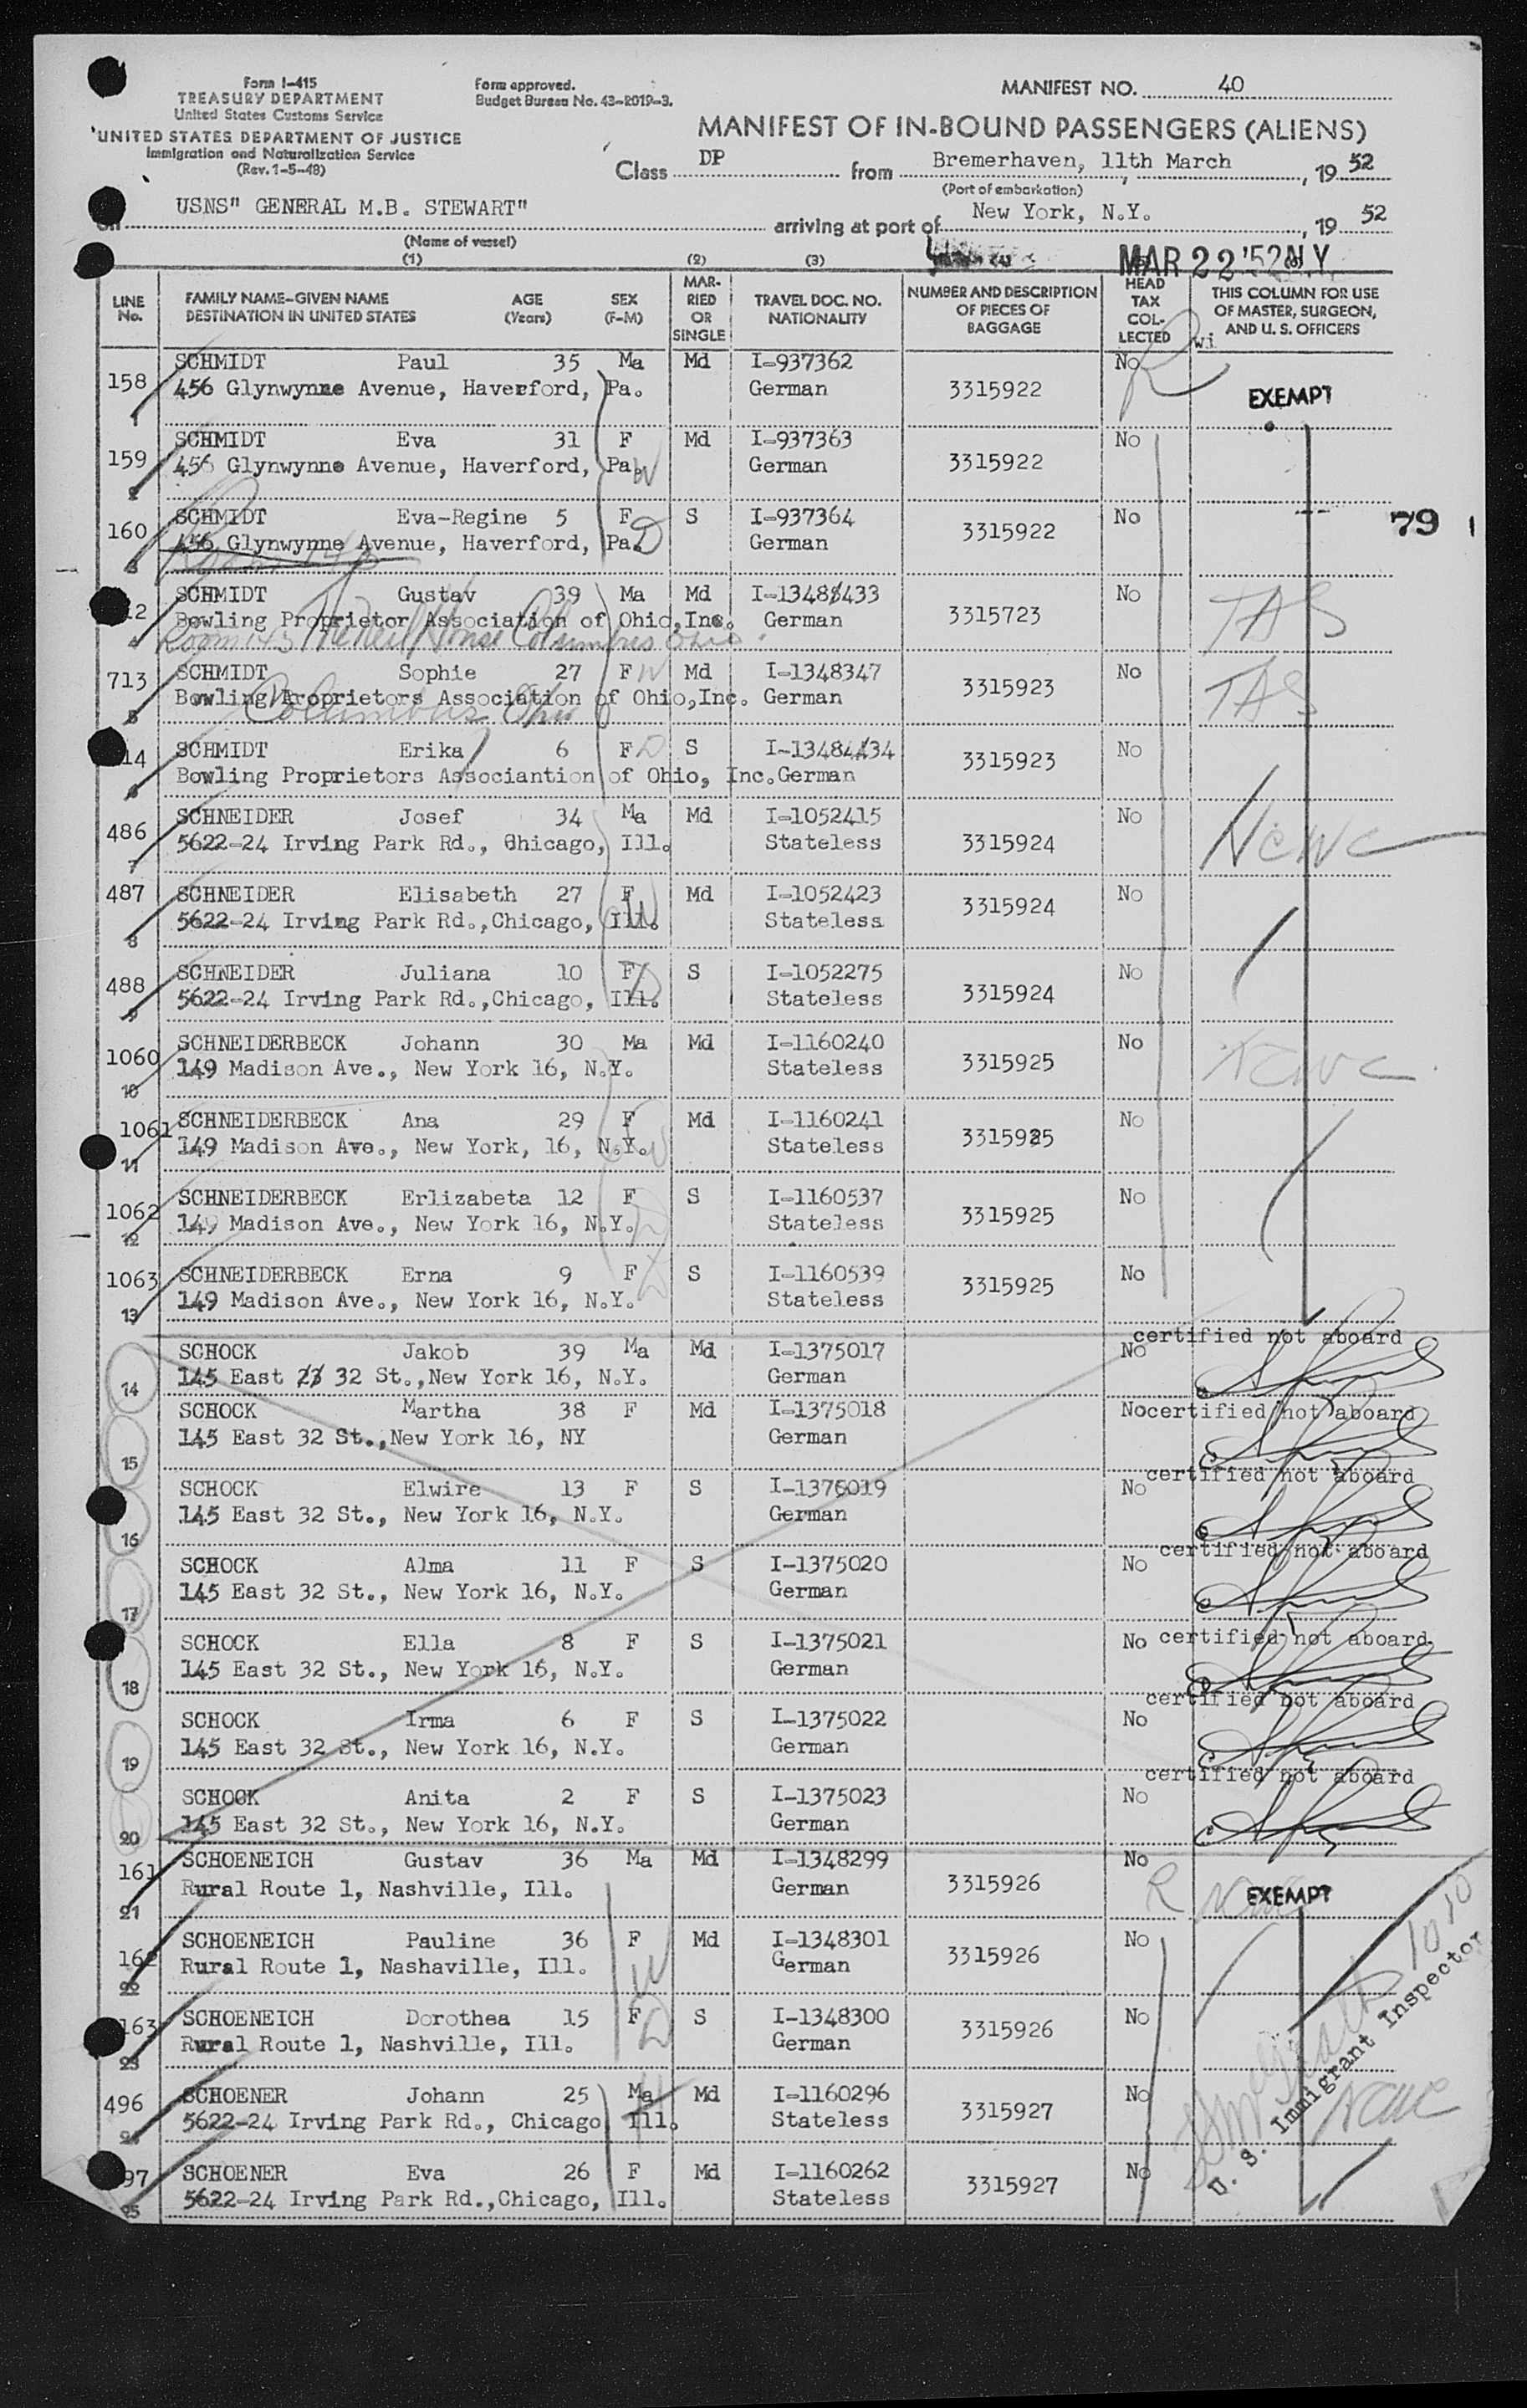 Form I-415
TREASURY DEPARTMENT
United States Customs Service
UNITED STATES DEPARTMENT OF JUSTICE
Immigration and Naturalization Service
(Rev. 1-5-48)
Form approved.
Budget Bureau No. 43-R019-3.
MANIFEST NO. 40
MANIFEST OF IN-BOUND PASSENGERS (ALIENS)
Class DP from Bremerhaven, 11th March, 19 52
(Port of embarkation)
on USNS" GENERAL M.B. STEWART" arriving at port of New York, N.Y., 19 52
(Name of vessel)
MAR 22 '52 N.Y.
(1) (2) (3)
LINE No. FAMILY NAME-GIVEN NAME DESTINATION IN UNITED STATES AGE (Years) SEX (F-M) MARRIED OR SINGLE TRAVEL DOC. NO. NATIONALITY NUMBER AND DESCRIPTION OF PIECES OF BAGGAGE HEAD TAX COLLECTED THIS COLUMN FOR USE OF MASTER, SURGEON, AND U. S. OFFICERS
R wi
158 SCHMIDT Paul 35 Ma Md I-937362 No
1 456 Glynwynne Avenue, Haverford, Pa. German 3315922 EXEMPT
159 SCHMIDT Eva 31 F Md I-937363 No
2 456 Glynwynne Avenue, Haverford, Pa. W German 3315922
160 SCHMIDT Eva-Regine 5 F S I-937364 No
3 456 Glynwynne Avenue, Haverford, Pa. D German 3315922
79
12 SCHMIDT Gustav 39 Ma Md I-1348433 No
4 Bowling Proprietor Association of Ohio,Inc. German 3315723 TAS
Room 143 The Neil House Columbus Ohio.
713 SCHMIDT Sophie 27 F W Md I-1348347 No
5 Bowling Proprietors Association of Ohio,Inc. German 3315923 TAS
Columbus Ohio
14 SCHMIDT Erika 6 F D S I-1348434 No
6 Bowling Proprietors Associantion of Ohio, Inc.German 3315923
486 SCHNEIDER Josef 34 Ma Md I-1052415 No
7 5622-24 Irving Park Rd., Chicago, Ill. Stateless 3315924 NCWC
487 SCHNEIDER Elisabeth 27 F Md I-1052423 No
8 5622-24 Irving Park Rd.,Chicago, Ill. W Stateless 3315924
488 SCHNEIDER Juliana 10 F S I-1052275 No
9 5622-24 Irving Park Rd.,Chicago, Ill. D Stateless 3315924
1060 SCHNEIDERBECK Johann 30 Ma Md I-1160240 No
10 149 Madison Ave., New York 16, N.Y. Stateless 3315925 NCWC
1061 SCHNEIDERBECK Ana 29 F Md I-1160241 No
11 149 Madison Ave., New York, 16, N.Y. W Stateless 3315925
1062 SCHNEIDERBECK Erlizabeta 12 F S I-1160537 No
12 149 Madison Ave., New York 16, N.Y. D Stateless 3315925
1063 SCHNEIDERBECK Erna 9 F S I-1160539 No
13 149 Madison Ave., New York 16, N.Y. D Stateless 3315925
SCHOCK Jakob 39 Ma Md I-1375017 No certified not aboard
14 145 East 23 32 St.,New York 16, N.Y. German
SCHOCK Martha 38 F Md I-1375018 No certified not aboard
15 145 East 32 St.,New York 16, NY German
SCHOCK Elwire 13 F S I-1375019 No certified not aboard
16 145 East 32 St., New York 16, N.Y. German
SCHOCK Alma 11 F S I-1375020 No certified not aboard
17 145 East 32 St., New York 16, N.Y. German
SCHOCK Ella 8 F S I-1375021 No certified not aboard
18 145 East 32 St., New York 16, N.Y. German
SCHOCK Irma 6 F S I-1375022 No certified not aboard
19 145 East 32 St., New York 16, N.Y. German
SCHOCK Anita 2 F S I-1375023 No certified not aboard
20 145 East 32 St., New York 16, N.Y. German
161 SCHOENEICH Gustav 36 Ma Md I-1348299 No
21 Rural Route 1, Nashville, Ill. German 3315926 R EXEMPT
162 SCHOENEICH Pauline 36 F Md I-1348301 No
22 Rural Route 1, Nashaville, Ill. W German 3315926
163 SCHOENEICH Dorothea 15 F S I-1348300 No
23 Rural Route 1, Nashville, Ill. D German 3315926
496 SCHOENER Johann 25 Ma Md I-1160296 No
24 5622-24 Irving Park Rd., Chicago Ill. Stateless 3315927 NCWC
97 SCHOENER Eva 26 F Md I-1160262 No
25 5622-24 Irving Park Rd.,Chicago, Ill. Stateless 3315927
1010
U. S. Immigrant Inspector